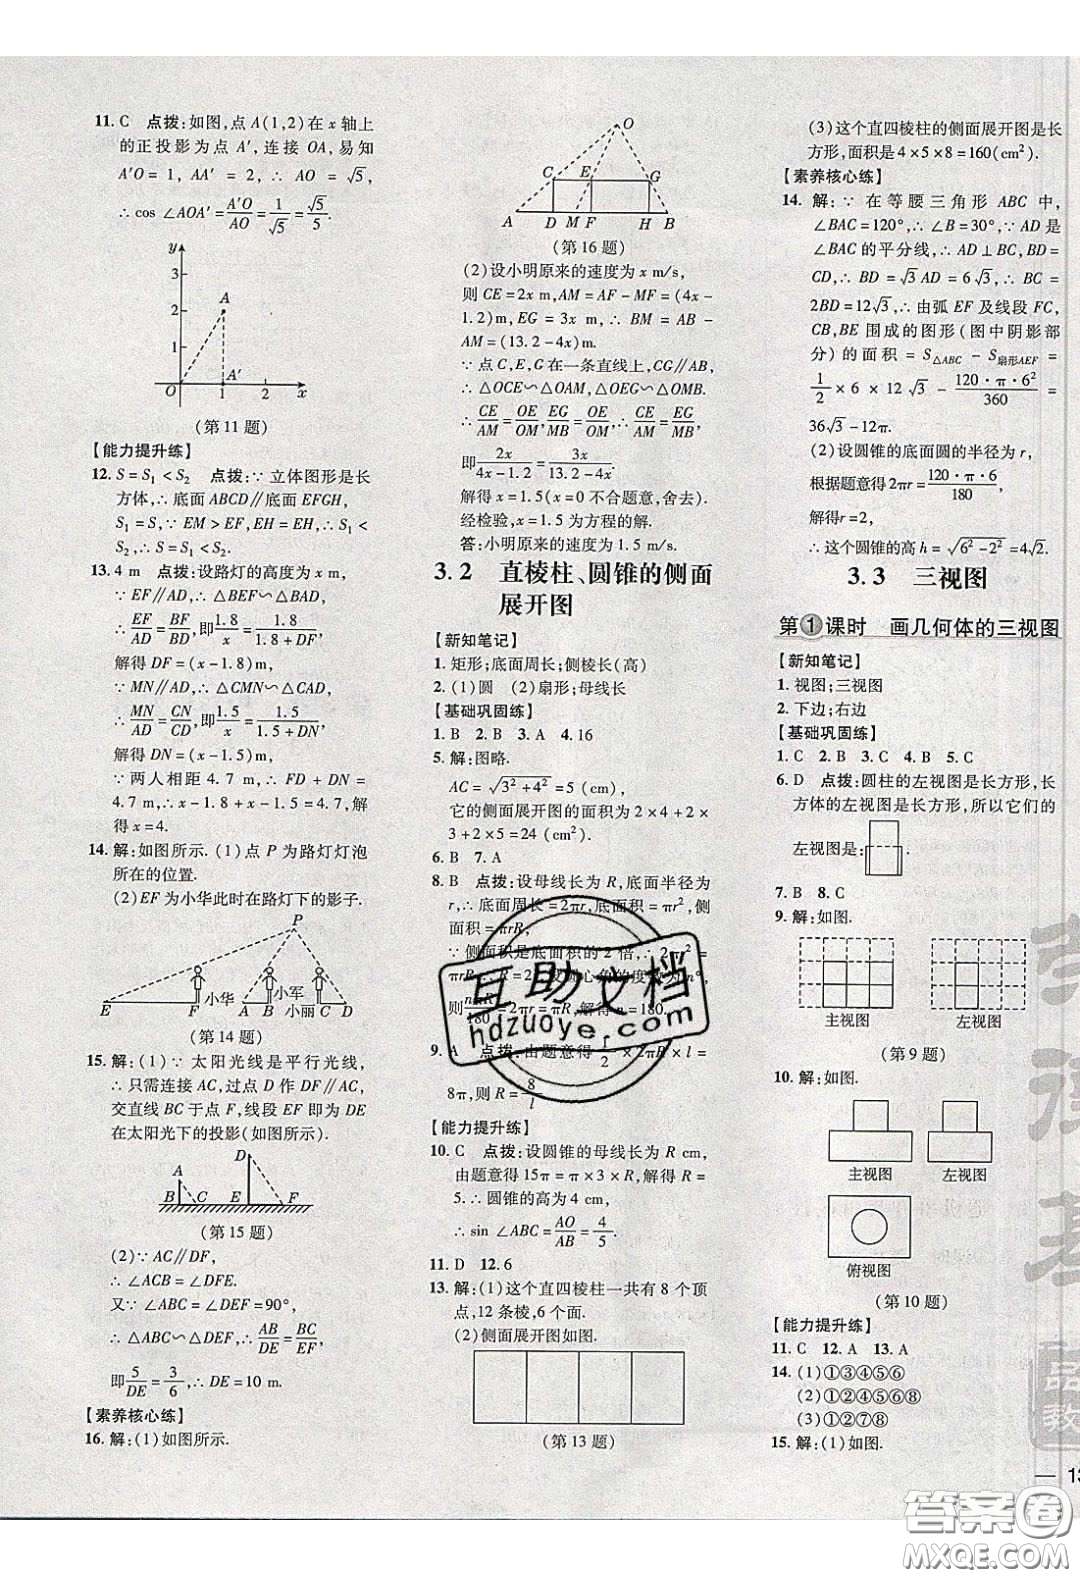 11. C 点拨:如图,点 A(1,2)在 x 轴上
的正投影为点 A′,连接 OA,易知
A′O=1, AA′=2. ∴ AO=√5,
∴ cos ∠AOA′=A′O/AO=1/√5=√5/5.
y
3
2
1
A
O
A′
1
2
x
(第 11 题)
【能力提升练】
12. S=S₁<S₂ 点拨:∵ 立体图形是长
方体,∴ 底面 ABCD∥底面 EFGH,
S₁=S,∵ EM>EF,EH=EH,∴ S₁<
S₂,∴ S=S₁<S₂.
13. 4 m 点拨:设路灯的高度为 x m,
∵ EF∥AD,∴ △BEF∽△BAD,
∴ EF/AD=BF/BD,即1.8/x=1.8/(1.8+DF),
解得 DF=(x-1.8)m.
∵ MN∥AD,∴ △CMN∽△CAD,
∴ MN/AD=CN/CD,即1.5/x=1.5/(1.5+DN),
解得 DN=(x-1.5)m.
∵ 两人相距 4.7 m,∴ FD+DN=
4.7 m,∴ x-1.8+x-1.5=4.7,解
得 x=4.
14. 解:如图所示.(1)点 P 为路灯灯泡
所在的位置.
(2)EF 为小华此时在路灯下的影子.
P
小华
小军
小丽
E F A B C D
(第 14 题)
15. 解:(1)∵ 太阳光线是平行光线,
∴ 只需连接 AC,过点 D 作 DF∥AC,
交直线 BC 于点 F,线段 EF 即为 DE
在太阳光下的投影(如图所示).
D
A
B C E F
(第 15 题)
(2)∵ AC∥DF,
∴ ∠ACB=∠DFE.
又∵ ∠ABC=∠DEF=90°,
∴ △ABC∽△DEF,∴ AB/DE=BC/EF,
即5/DE=3/6,∴ DE=10 m.
【素养核心练】
16. 解:(1)如图所示.
O
C E G
A D M F H B
(第 16 题)
(2)设小明原来的速度为 x m/s,
则 CE=2x m,AM=AF-MF=(4x-
1.2)m,EG=3x m,∴ BM=AB-
AM=(13.2-4x)m.
∵ 点 C,E,G 在一条直线上,CG∥AB,
∴ △OCE∽△OAM,△OEG∽△OMB.
∴ CE/AM=OE/OM,EG/MB=OE/OM,∴ CE/AM=EG/MB,
即2x/(4x-1.2)=3x/(13.2-4x),
解得 x=1.5(x=0 不合题意,舍去).
经检验,x=1.5 为方程的解.
答:小明原来的速度为 1.5 m/s.
3.2 直棱柱、圆锥的侧面
展开图
【新知笔记】
1. 矩形;底面周长;侧棱长(高)
2. (1)圆 (2)扇形;母线长
【基础巩固练】
1. B 2. B 3. A 4. 16
5. 解:图略.
AC=√(3²+4²)=5 (cm),
它的侧面展开图的面积为 2×4+2×
3+2×5=24 (cm²).
6. B 7. A
8. B 点拨:设母线长为 R,底面半径为
r,∴ 底面周长=2πr,底面积=πr²,侧
面积=πrR,
∵ 侧面积是底面积的 2 倍,∴ 2πr²=
πrR,∴ R=2r,设圆心角的度数为 n°,
则nπR/180=2πr,解得 n=180.
9. A 点拨:由题意得1/2×2πR×l=
8π,则 R=8/l
【能力提升练】
10. C 点拨:设圆锥的母线长为 R cm,
由题意得 15π=π×3×R,解得 R=
5.∴ 圆锥的高为 4 cm,
∴ sin ∠ABC=AO/AB=4/5.
11. D 12. 6
13. 解:(1)这个直四棱柱一共有 8 个顶
点,12 条棱,6 个面.
(2)侧面展开图如图.
(第 13 题)
(3)这个直四棱柱的侧面展开图是长
方形,面积是 4×5×8=160(cm²).
【素养核心练】
14. 解:∵ 在等腰三角形 ABC 中,
∠BAC=120°,∴ ∠B=30°,∵ AD 是
∠BAC 的平分线,∴ AD⊥BC,BD=
CD,∴ BD=√3 AD=6√3,∴ BC=
2BD=12√3,∴ 由弧 EF 及线段 FC,
CB,BE 围成的图形(图中阴影部
分)的面积=S△ABC-S扇形AEF=
1/2×6×12√3-120·π·6²/360=
36√3-12π.
(2)设圆锥的底面圆的半径为 r,
根据题意得 2πr=120·π·6/180,
解得 r=2,
∴ 这个圆锥的高 h=√(6²-2²)=4√2.
3.3 三视图
第1课时 画几何体的三视图
【新知笔记】
1. 视图;三视图
2. 下边;右边
【基础巩固练】
1. C 2. B 3. C 4. B 5. C
6. D 点拨:圆柱的左视图是长方形,长
方体的左视图是长方形,所以它们的
左视图是:
7. B 8. C
9. 解:如图.
主视图 左视图
(第 9 题)
10. 解:如图.
主视图 左视图
俯视图
(第 10 题)
【能力提升练】
11. C 12. A 13. A
14. (1)①③④⑤⑥
(2)①②③④⑤⑥
(3)①②⑦⑧
15. 解:(1)如图.
— 13
互助文档
hdzuoye.com
答案卷
MXQE.COM